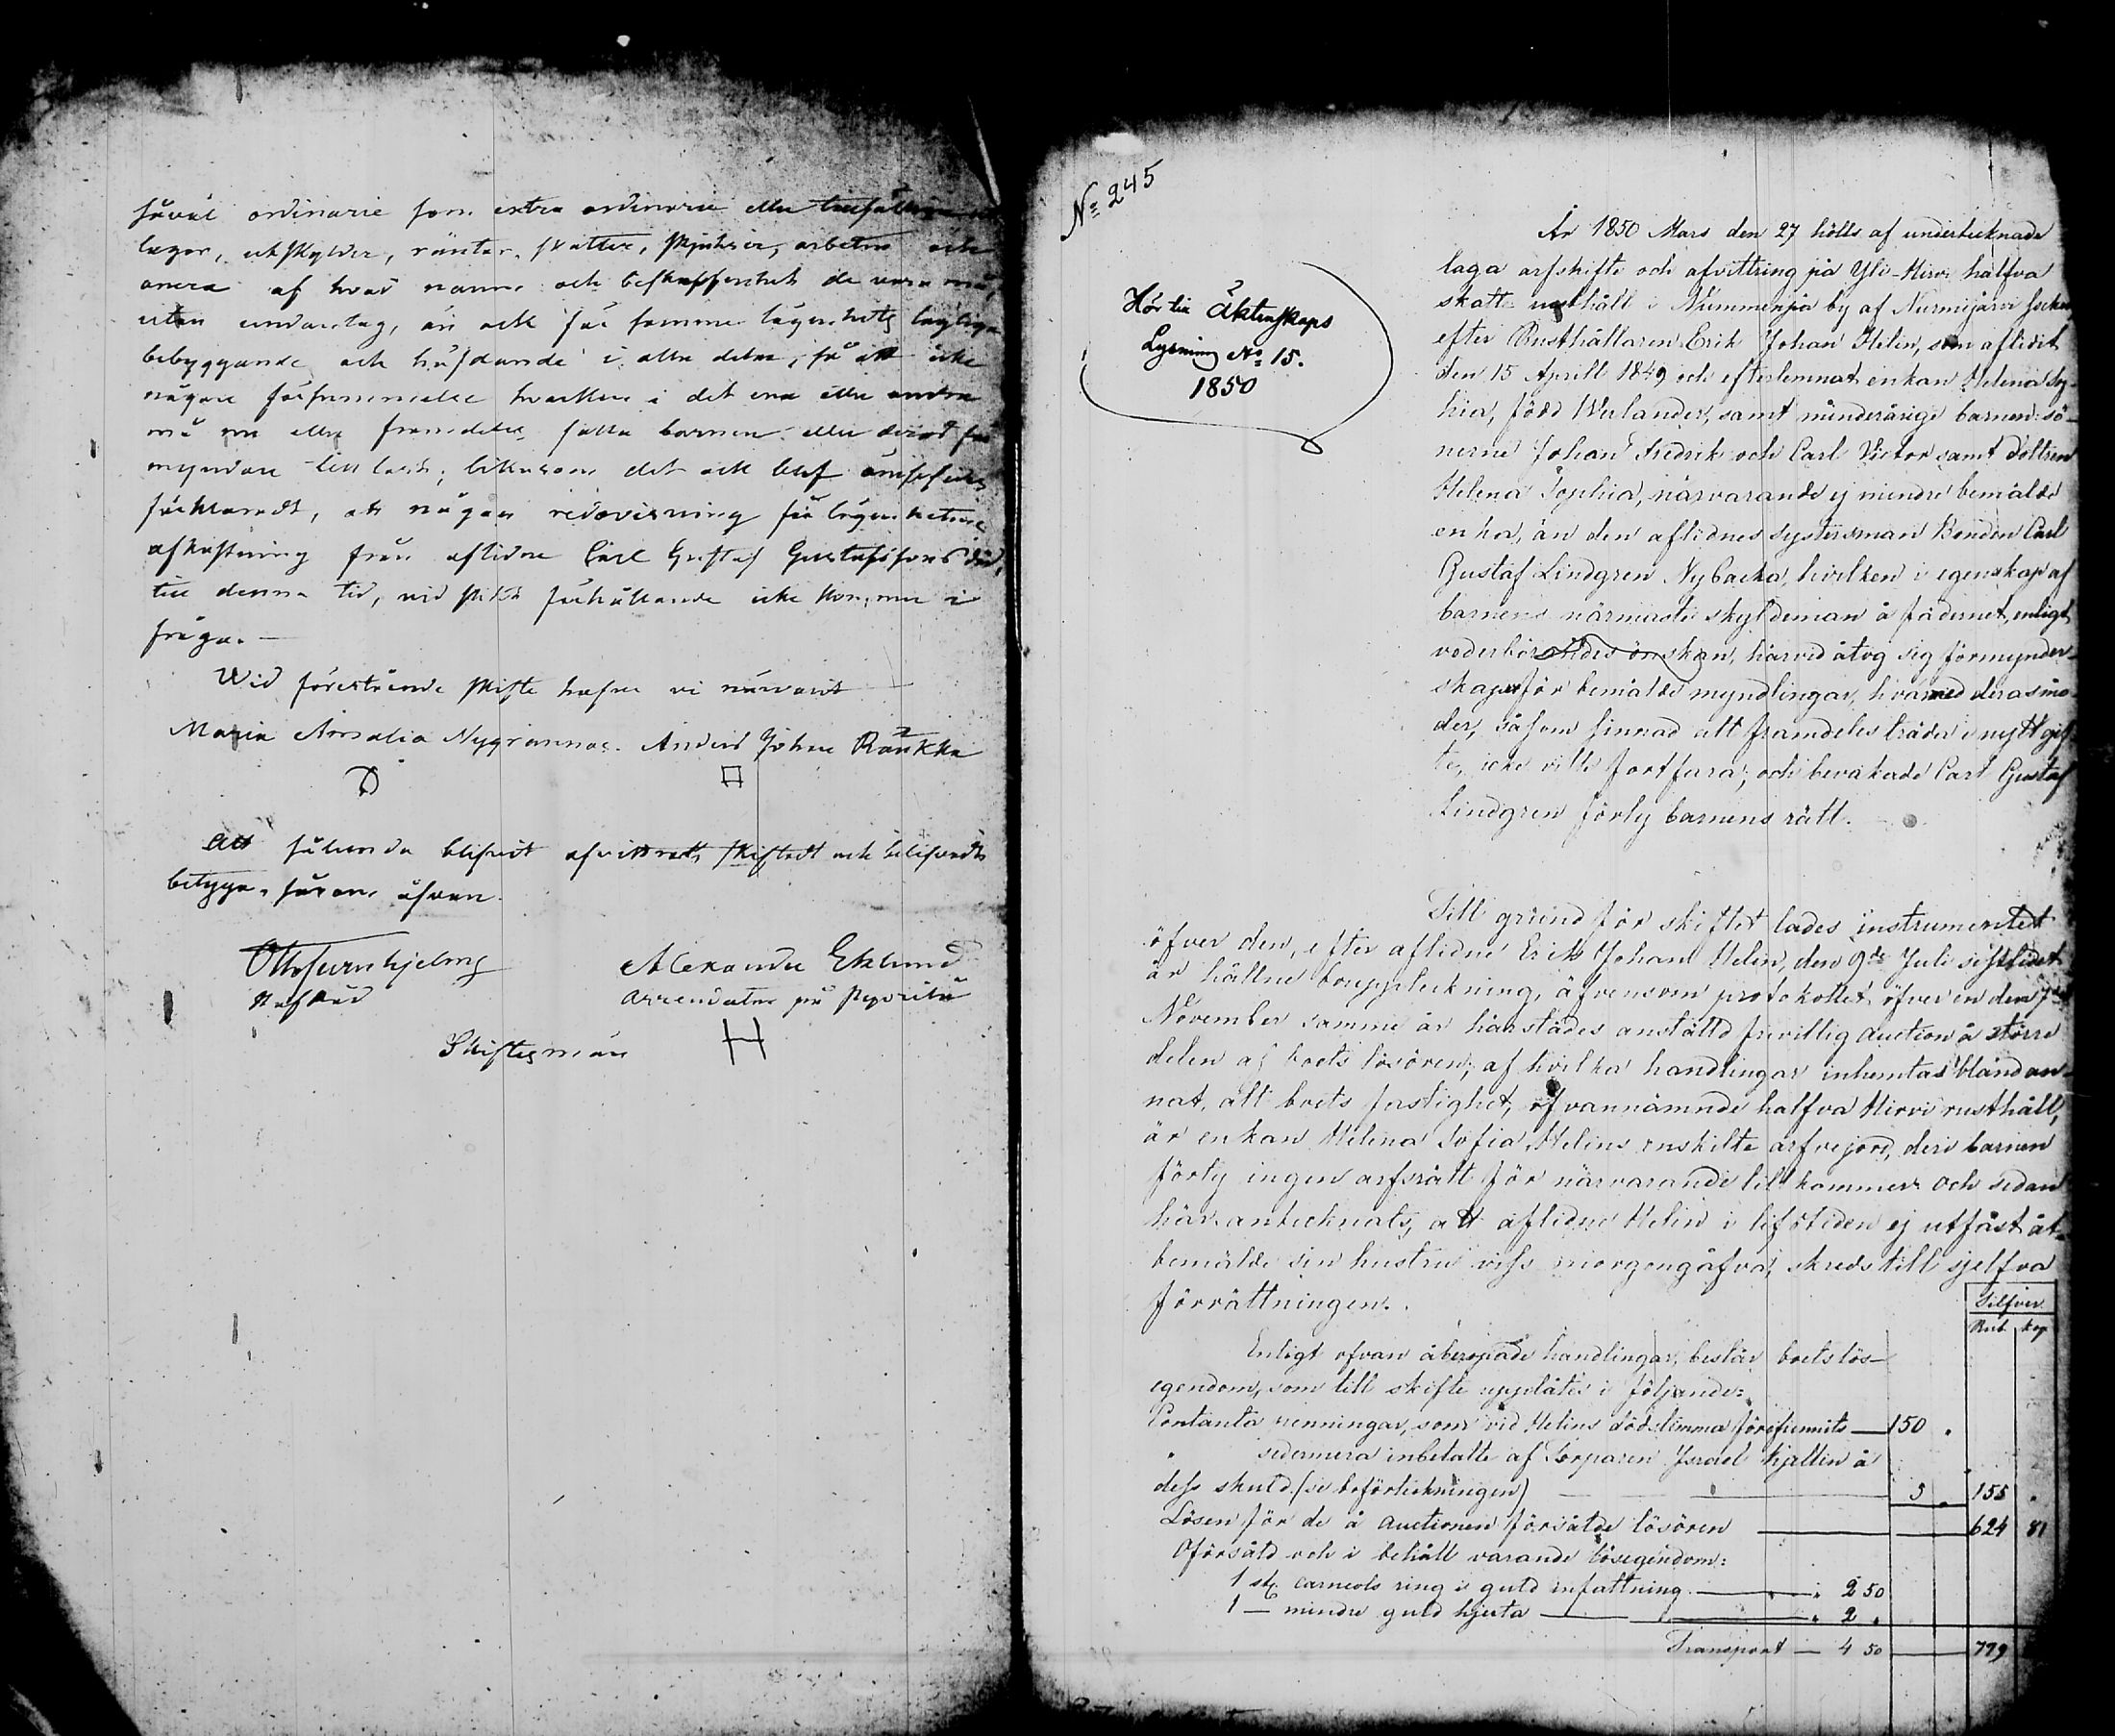 såväl ordinarie som extra ordinarie eller tillfälliga
lagor, utskylder, räntor, skatter, skjutser, arbeten och
onera af hvad namn och beskaffenhet de vara må,
utan undantag, än ock för samma lägenhets lagliga
bebyggande och häfdande i alla delar, så att icke
någon försummelse hvarken i det ena eller andra
må nu eller framdeles falla barnen eller deras för
myndare till last; likasom det ock blef
förklaradt, att någon redovisning för lägenhetens
afkastning från aflidne Carl Gustaf Gustafssons död,
till denna tid, vid skedt förhållande icke kommer i
fråga. —
Wid förestående skifte hafva vi närvarit —
Maria Amalia Nygrannas. Anders Johan Raukka
Att sålunda blifvit afvittradt, skiftadt och
betyga, såsom ofvan.
Otto Furuhjelm
Alexander Eklund
arrendator på
Skiftesmän
H
No 245
Hör till Äktenskaps
Lysning No 15.
1850
År 1850 Mars den 27 hölls af undertecknade
laga arfskifte och afvittring på Yli-Hirvi halfva
skatte rusthåll i Nummenpää by af Nurmijärvi Socken
efter Rusthållaren Erik Johan Helin, som aflidit
den 15 Aprill 1849 och efterlemnat enkan Helena So-
hia, född Werlander, samt minderårige barnen: sö-
nerne Johan Fredrik och Carl Victor samt dottren
Helena Sophia, närvarande ej mindre bemälde
enka, än den aflidnes systersman Bonden Carl
Gustaf Lindgren Nybacka, hvilken i egenskap af
barnens närmaste skyldeman å fädernet, enligt
vederbörandes önskan, härvid åtog sig förmynder-
skapet för bemälde myndlingar, hvarmed deras mo-
der, såsom sinnad att framdeles träda i nytt gif-
te, icke ville fortfara; och bevakade Carl Gustaf
Lindgren förty barnens rätt.
Till grund för skiftet lades instrumentet
öfver den, efter aflidne Erik Johan Helin, den 9de Juli sistlidet
år hållne bouppteckning, äfvensom protokollet öfver en den
November samme år härstädes anställd frivillig auction å större
delen af boets lösören; af hvilka handlingar inhemtas bland an-
nat, att boets fastighet, ofvannämnde halfva Hirvi rusthåll,
är enkan Helena Sofia Helins enskilte arfvejord, deri barnen
förty ingen arfsrätt för närvarande tillkommer. Och sedan
här antecknats, att aflidne Helin i lifstiden ej utfäst åt
bemälde sin hustru viss morgongåfva, skreds till sjelfva
förrättningen.
Silfver
Rub. kop
Enligt ofvan åberopade handlingar, består boets lös-
egendom, som till skifte upplåtes i följande:
Contanta penningar, som vid Helins dödstimma förefunnits — 150 .
" sedermera inbetalte af Torparen Israel Kjellin å
dess skuld (se boförteckningen) — 5 . 155 .
Lösen för de å auctionen försålde lösören — 624 81
Oförsåld och i behåll varande lösegendom:
1 st. carneols ring i guld infattning — " 2 50
1 — mindre guld hjerta — " 2 "
Transport — 4 50 — 779